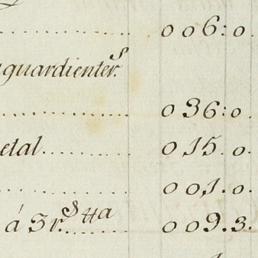 ........ 006:0.
guardienter.s
........ 036:0.
etal........ 015.0.
........ 001.0.
á 3r.s tta........ 009.3.